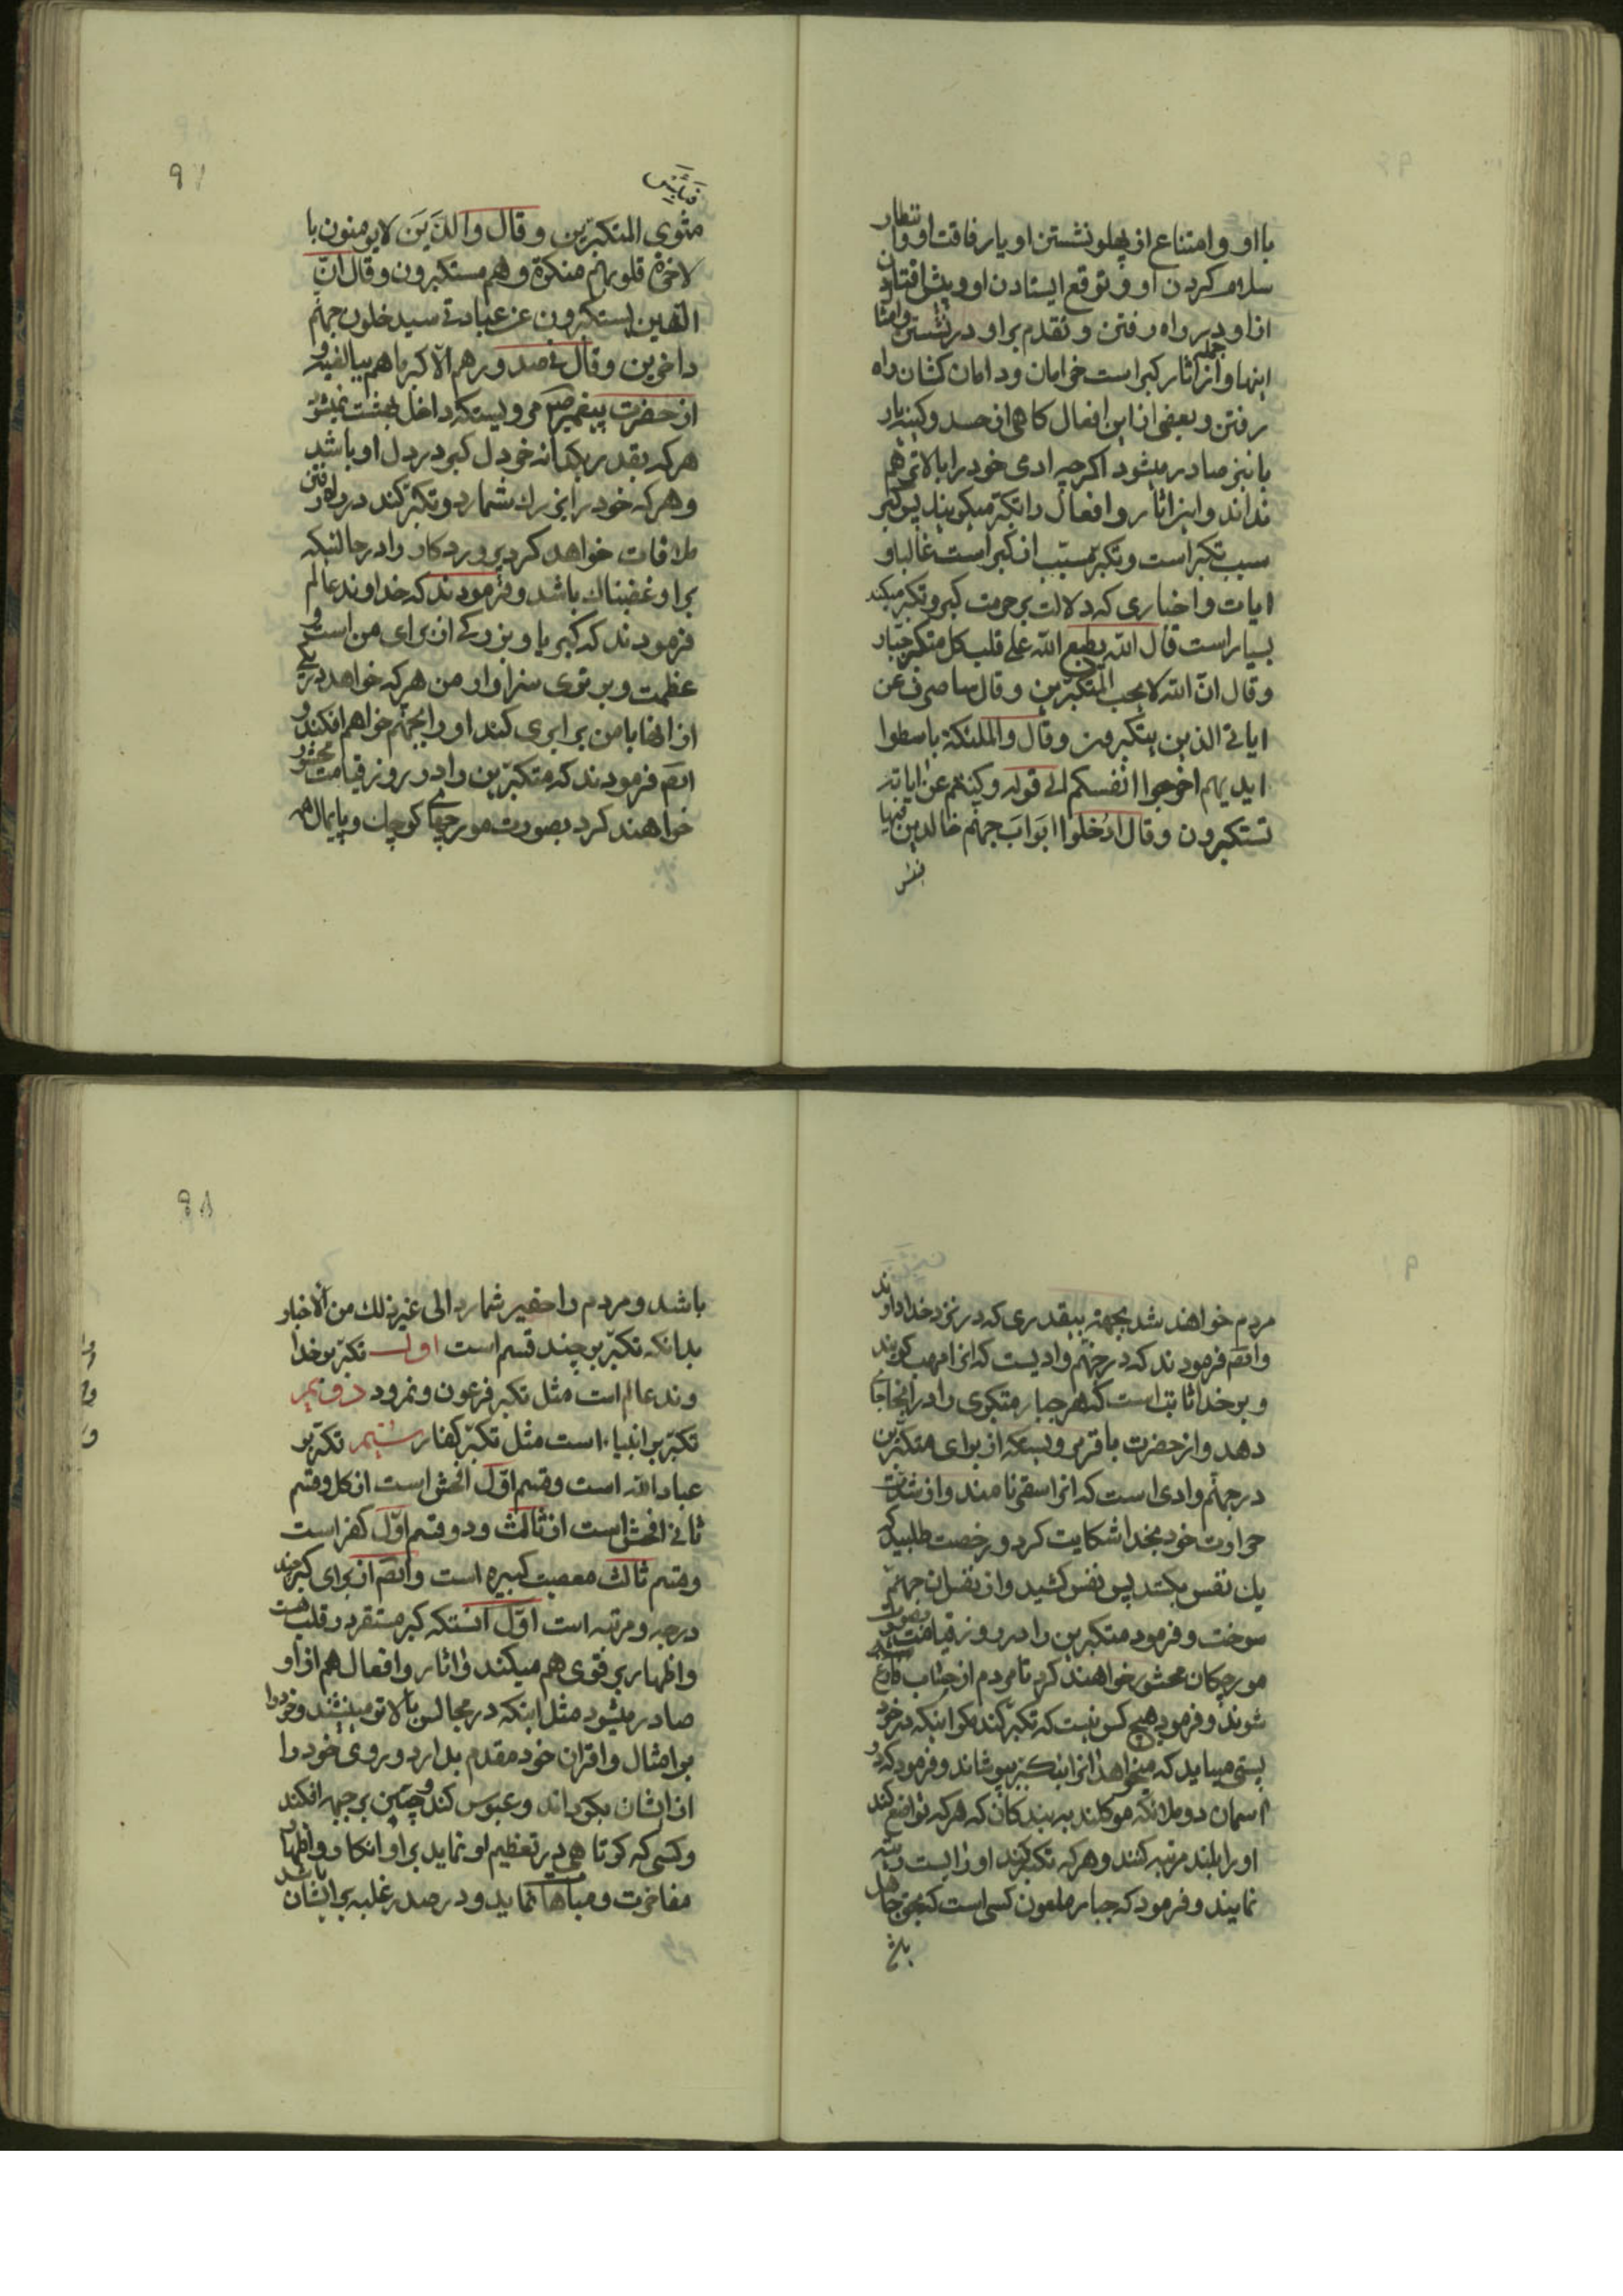 با او و امتناع از پهلو نشستن او یا رفاقت او و انتظار
سلام کردن او و توقع ایستادن او و پیش افتادن
از او در راه رفتن و تقدم بر او در نشستن و امثال
اینها و از جمله اثار کبر است خرامان و دامان کشان راه
رفتن و بعضی از این افعال کاهی از حسد و کینه یا ریا
یا نیز صادر میشود اکرچه ادمی خود را بالاتر هم
نداند و این اثار و افعال را تکبّر میکویند پس کبر
سبب تکبّر است و تکبّر مسبّب از کبر است غالبا و
ایات و اخباری که دلالت بر حرمت کبر و تکبّر میکند
بسیار است قال الله یطبع الله علی قلب کل متکبّر جبّار
و قال انّ الله لا یحب المتکبّرین و قال ساصرف عن
ایاتی الذین یتکبرون و قال والملئکة باسطوا
ایدیهم اخرجوا انفسکم الی قوله و کنتم عن ایاته
تستکبرون و قال ادُخلوا ابَوابَ جهنّم خالدین فیها
فبئس
97
فَبِئسَ
مثوی المتکبّرین و قال والذَینَ لا یومنون با
لاخرة قلوبهم منکرة و هم مستکبرون و قال انّ
الذین یستکبرون عن عبادتی سیدخلون جهنّم
داخرین و قال فی صدورهم الّا کبر ما هم ببالغیه و
از حضرت پیغمبر ص مرویستکه داخل بهشت نمیشود
هر که بقدر یکدانه خردل کبر در دل او باشد
و هر که خود را بزرك شمارد و تکبّر کند در راه رفتن
ملاقات خواهد کرد پروردکار را در حالتیکه
بر او غضبناك باشد و فرمودند که خداوند عالم
فرمودند که کبریا و بزرکی از برای من است و
عظمت و برتری سزاوار من هر که خواهد در یکی
از اینها با من برابری کند او را بجهنّم خواهم افکند و
ایضَ فرمودند که متکبّرین را در روز قیامت محشور
خواهند کرد بصورت مورچهای کوچك و پایمال همه
مردم خواهند شد بجهتِ بیقدری که در نزد خدا دارند
و ایضَ فرمودند که در جهنّم وادیست که انرا هبهب کویند
و بر خدا ثابت است که هر جبار متکبری را در انجا جای
دهد و از حضرت باقر مرویستکه از برای متکبّرین
در جهنّم وادی است که انرا سقر نامند و از شدّت
حرارت خود بخدا شکایت کرد و رخصت طلبید که
یك نفس بکشد پس نفس کشید و از نفس ان جهنّم
سوخت و فرمود متکبرین را در روز قیامت بصورت
مورچکان محشور خواهند کرد تا مردم از حساب فارغ
شوند و فرمود هیچ کس نیست که تکبّر کند مکر اینکه در خود
پستی میابد که میخواهد انرا بتکبّر بپوشاند و فرمود که در
اسمان دو ملائکه موکلند به بندکان که هر که تواضع کند
او را بلند مرتبه کنند و هر که تکبّر کند او را پست رتبه
نمایند و فرمود که جبار ملعون کسی است که بحق جاهل
98
باشد و مردم را حقیر شمارد الی غیر ذلك من الاخبار
بدانکه تکبّر بر چند قسم است اول تکبّر بر خدا
وند عالم است مثل تکبر فرعون و نمرود دویم
تکبّر بر انبیاء است مثل تکبّر کفار سیّم تکبّر بر
عباد الله است و قسم اوّل افحش است از کل و قسم
ثانی افحش است از ثالث و دو قسم اوّل کفر است
و قسم ثالث معصیت کبیره است و ایضَ از برای کبر چند
درجه و مرتبه است اوّل انستکه کبر مستقر در قلب هست
و اظهار بر قوی هم میکند و اثار و افعال هم از او
صادر میشود مثل اینکه در مجالس بالاتر مینشند و خود را
بر امثال و اقران خود مقدم بدارد و روی خود را
از ایشان بکرداند و عبوس کند و چین بر جبهه افکند
و کسی که کوتاهی در تعظیم او نماید بر او انکار و اظهار
مفاخرت و مباهات نماید و در صدد غلبه بر ایشان باشد